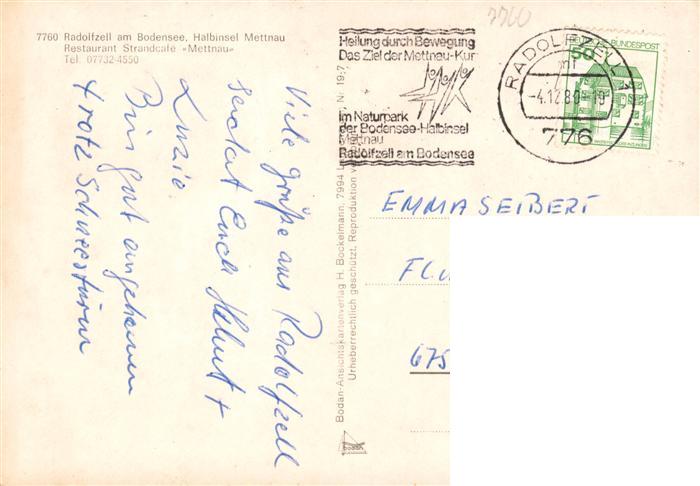 7760 Radolfzell am Bodensee, Halbinsel Mettnau
Restaurant Strandcafé »Mettnau«
Tel. 07732-4550
7760
Heilung durch Bewegung
Das Ziel der Mettnau-Kur
Im Naturpark
der Bodensee-Halbinsel
Mettnau
Radolfzell am Bodensee
RADOLFZELL 1
mf
-4.12.80-19
776
50
DEUTSCHE BUNDESPOST
Viele Grüße aus Radolfzell
sendet Euch Helmut +
Luzie.
Bin gut angekommen
trotz Schneesturm
Bodan-Ansichtskartenverlag H. Bockelmann, 7994
Urheberrechtlich geschützt. Reproduktion
bodan
EMMA SEIBERT
675